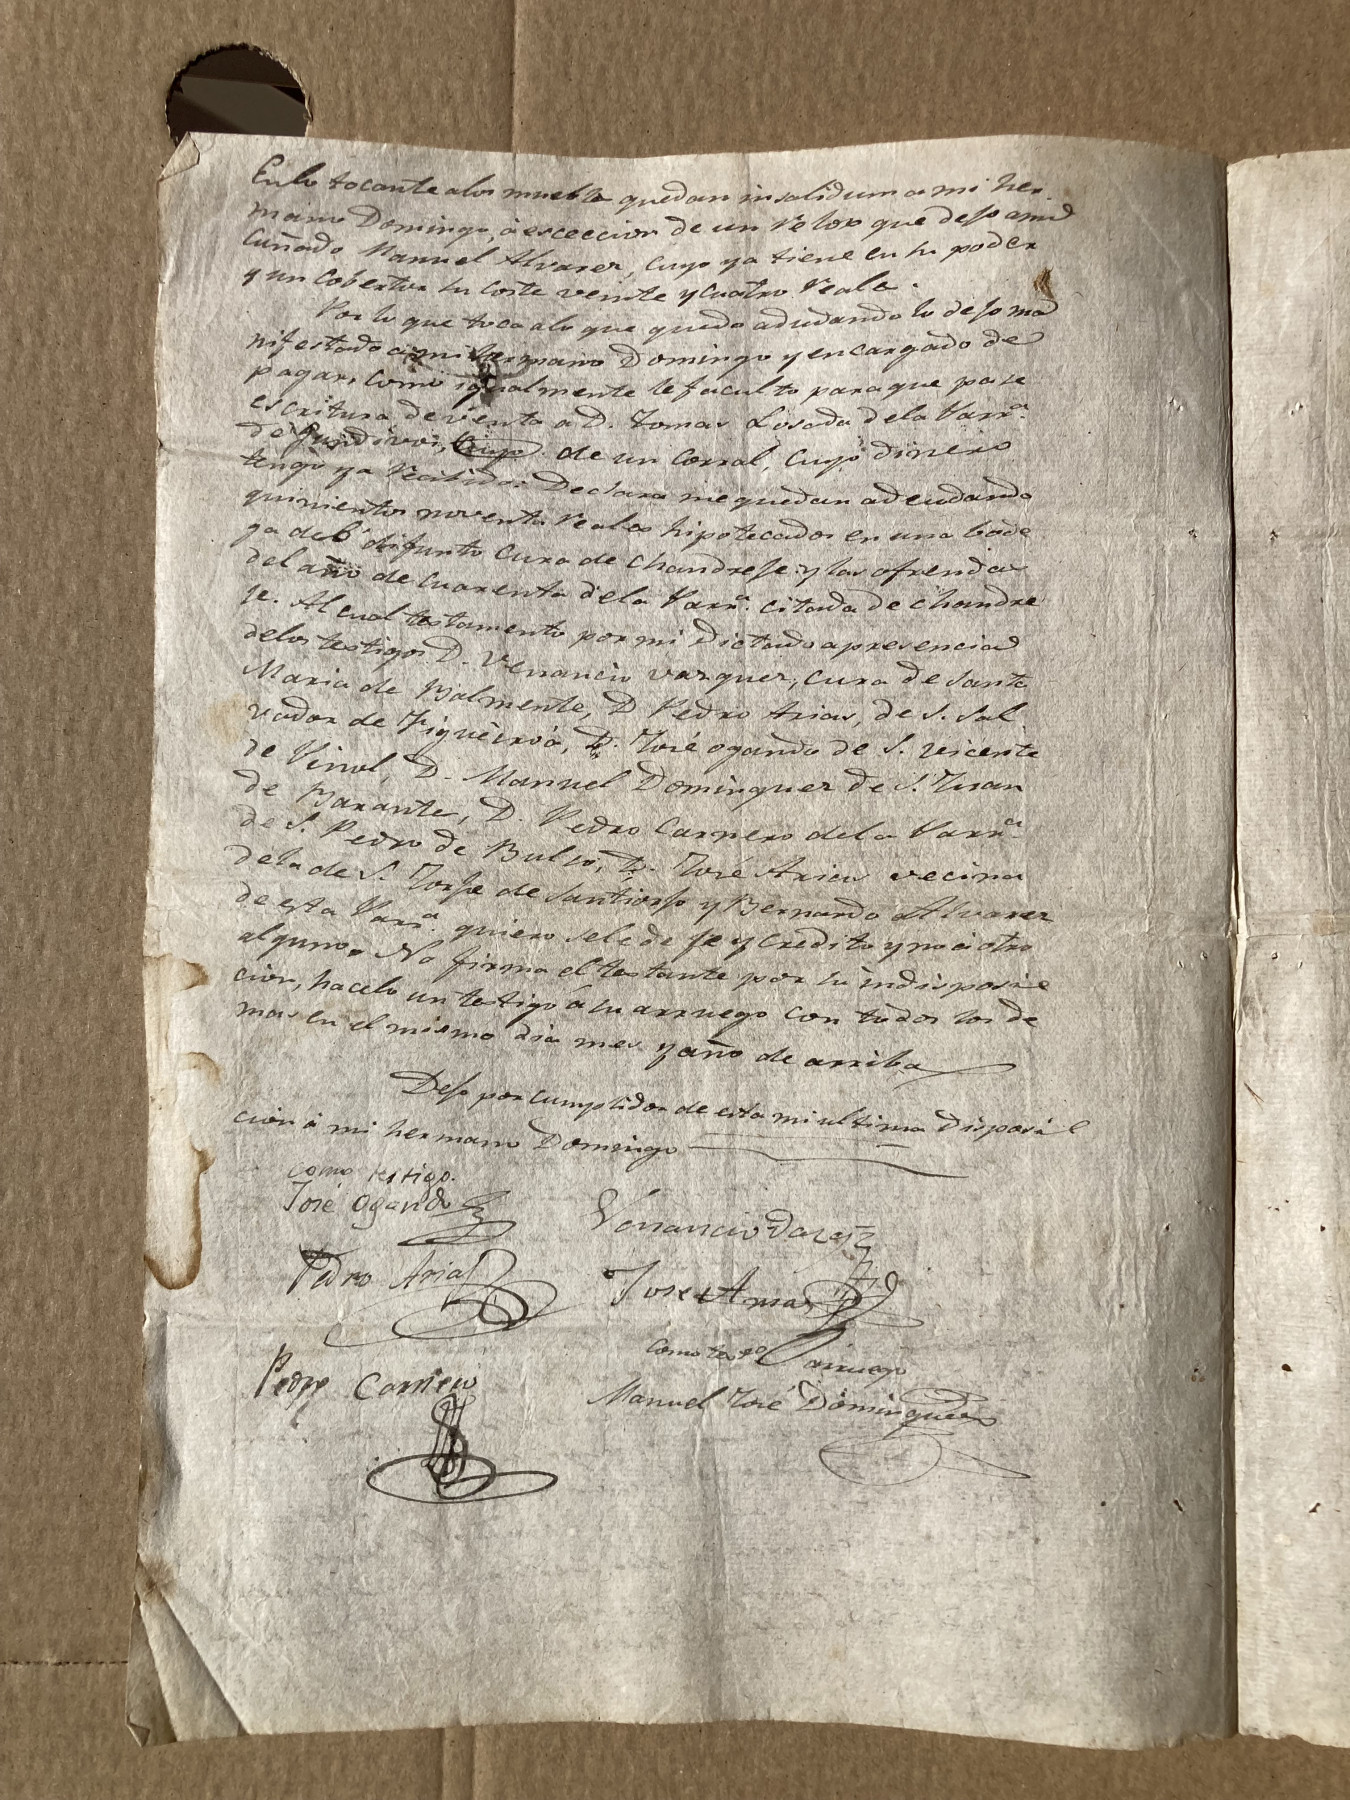 En lo tocante a los muebles quedan insolidum a mi her-
mano Domingo, á esceccion de un relox que dejo a mi
cuñado Manuel Alvarez, cuyo ya tiene en su poder
y un cobertor su coste veinte y cuatro reales.
Por lo que toca a lo que quedo adudando lo dejo ma
nifestado a mi hermano Domingo y encargado de
pagar, como igualmente le faculto para que pase
escritura de venta a D. Tomas Losada de la Parr.ª
de de un corral, cuyo dinero
tengo ya recibido: Declaro me quedan adeudando
quinientos noventa reales hipotecados en una bode
ga del difunto cura de Chandreje: y las ofrendas
del año de cuarenta de la Parr.ª citada de Chandre
je. Al cual testamento por mi dictado a presencia
de los testigos D. Venancio Vazquez, cura de Santa
Maria de Balmente, D. Pedro Arias, de S. Sal
vador de Figueiroá, D. José Ogando de S. Vicente
de Pinol, D. Manuel Dominguez de S. Juan
de Barante, D. Pedro Carnero de la Parr.ª
de S. Pedro de Bulso, D. José Arias vecino
de la de S. Jorje de Santiorjo y Bernardo Alvarez
de esta Parr.ª quiero se le de fe y credito y no á otro
alguno. No firma el testante por su indisposi
cion, hacelo un testigo á su arruego con todos los de
mas en el mismo dia mes y año de arriba
Dejo por cumplidor de esta mi ultima disposi
cion á mi hermano Domingo
como testigo.
José Ogando
Venancio Vazqz
Pedro Arias
José Arias
Como testo arruego
Pedro Carnero
Manuel José Dominguez